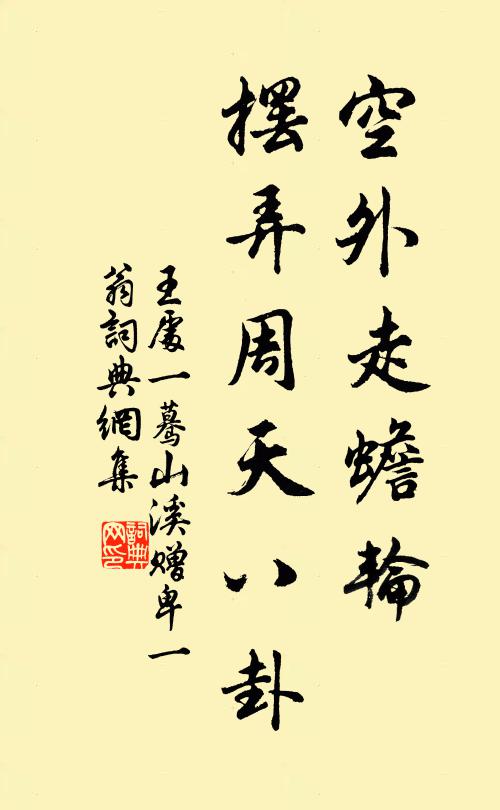 空外走蟾輪
擺弄周天八卦
王處一驀山溪贈卑一
翁詞典網集
詞典
网印